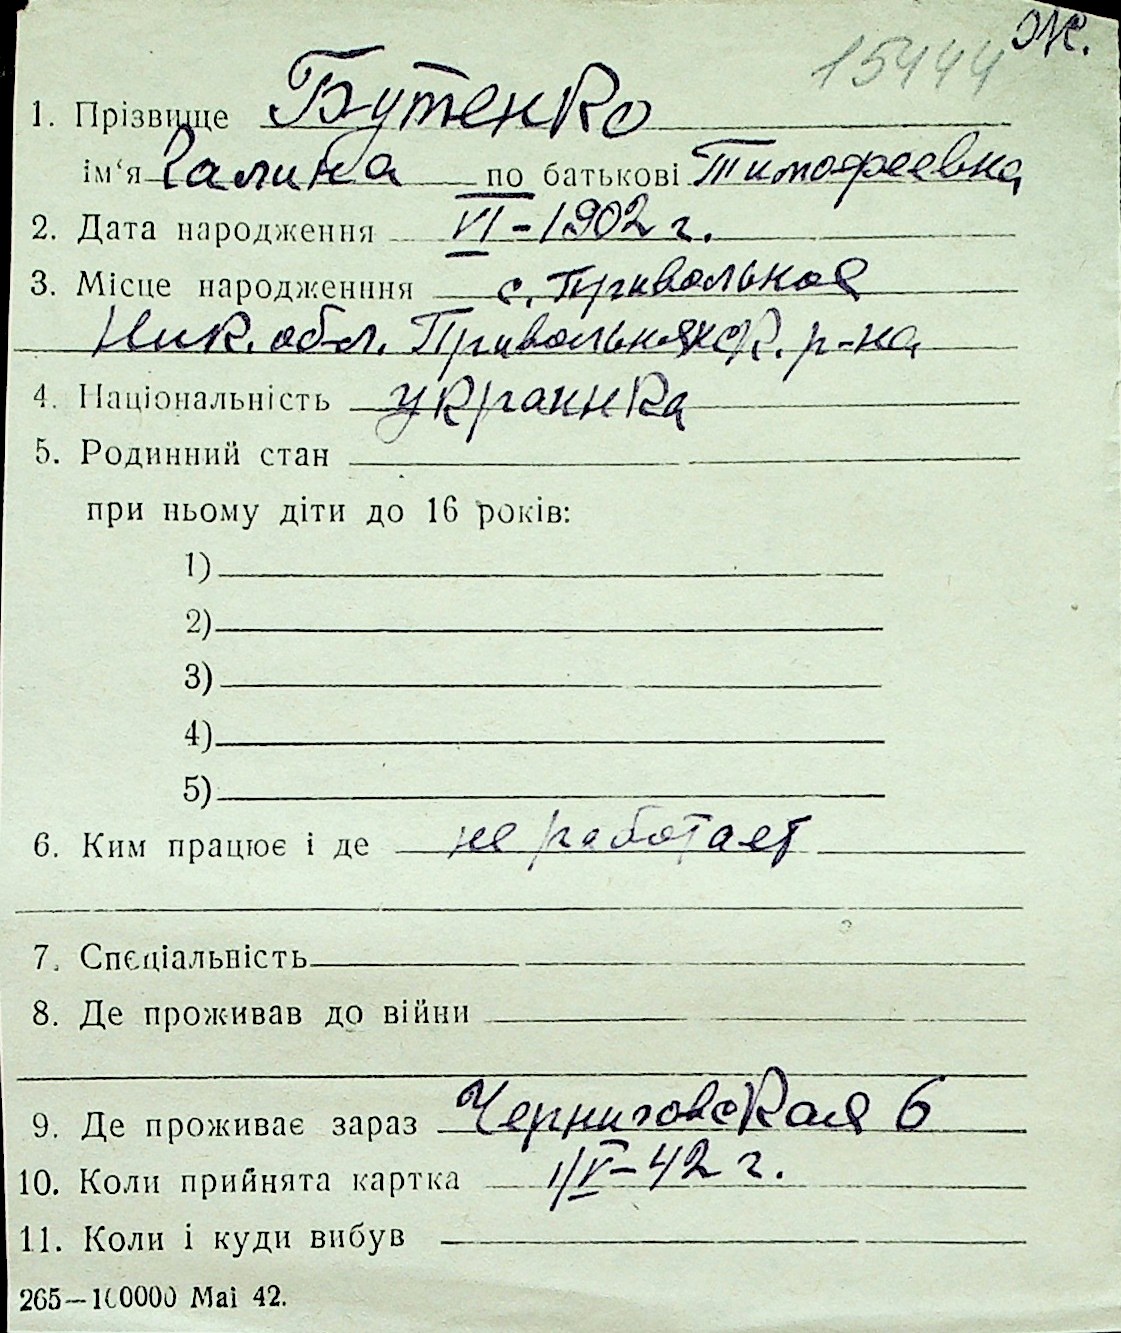 15444 Ж.
1. Прізвище Бутенко
ім'я Галина по батькові Тимофеевна
2. Дата народження VI-1902 г.
3. Місце народженння с. Привольное
Ник. обл. Привольнянск. р-на
4. Національність украинка
5. Родинний стан
при ньому діти до 16 років:
1)
2)
3)
4)
5)
6. Ким працює і де не работает
7. Спєціальність
8. Де проживав до війни
9. Де проживає зараз Черниговская 6
10. Коли прийнята картка 1/V-42 г.
11. Коли і куди вибув
265—100000 Mai 42.